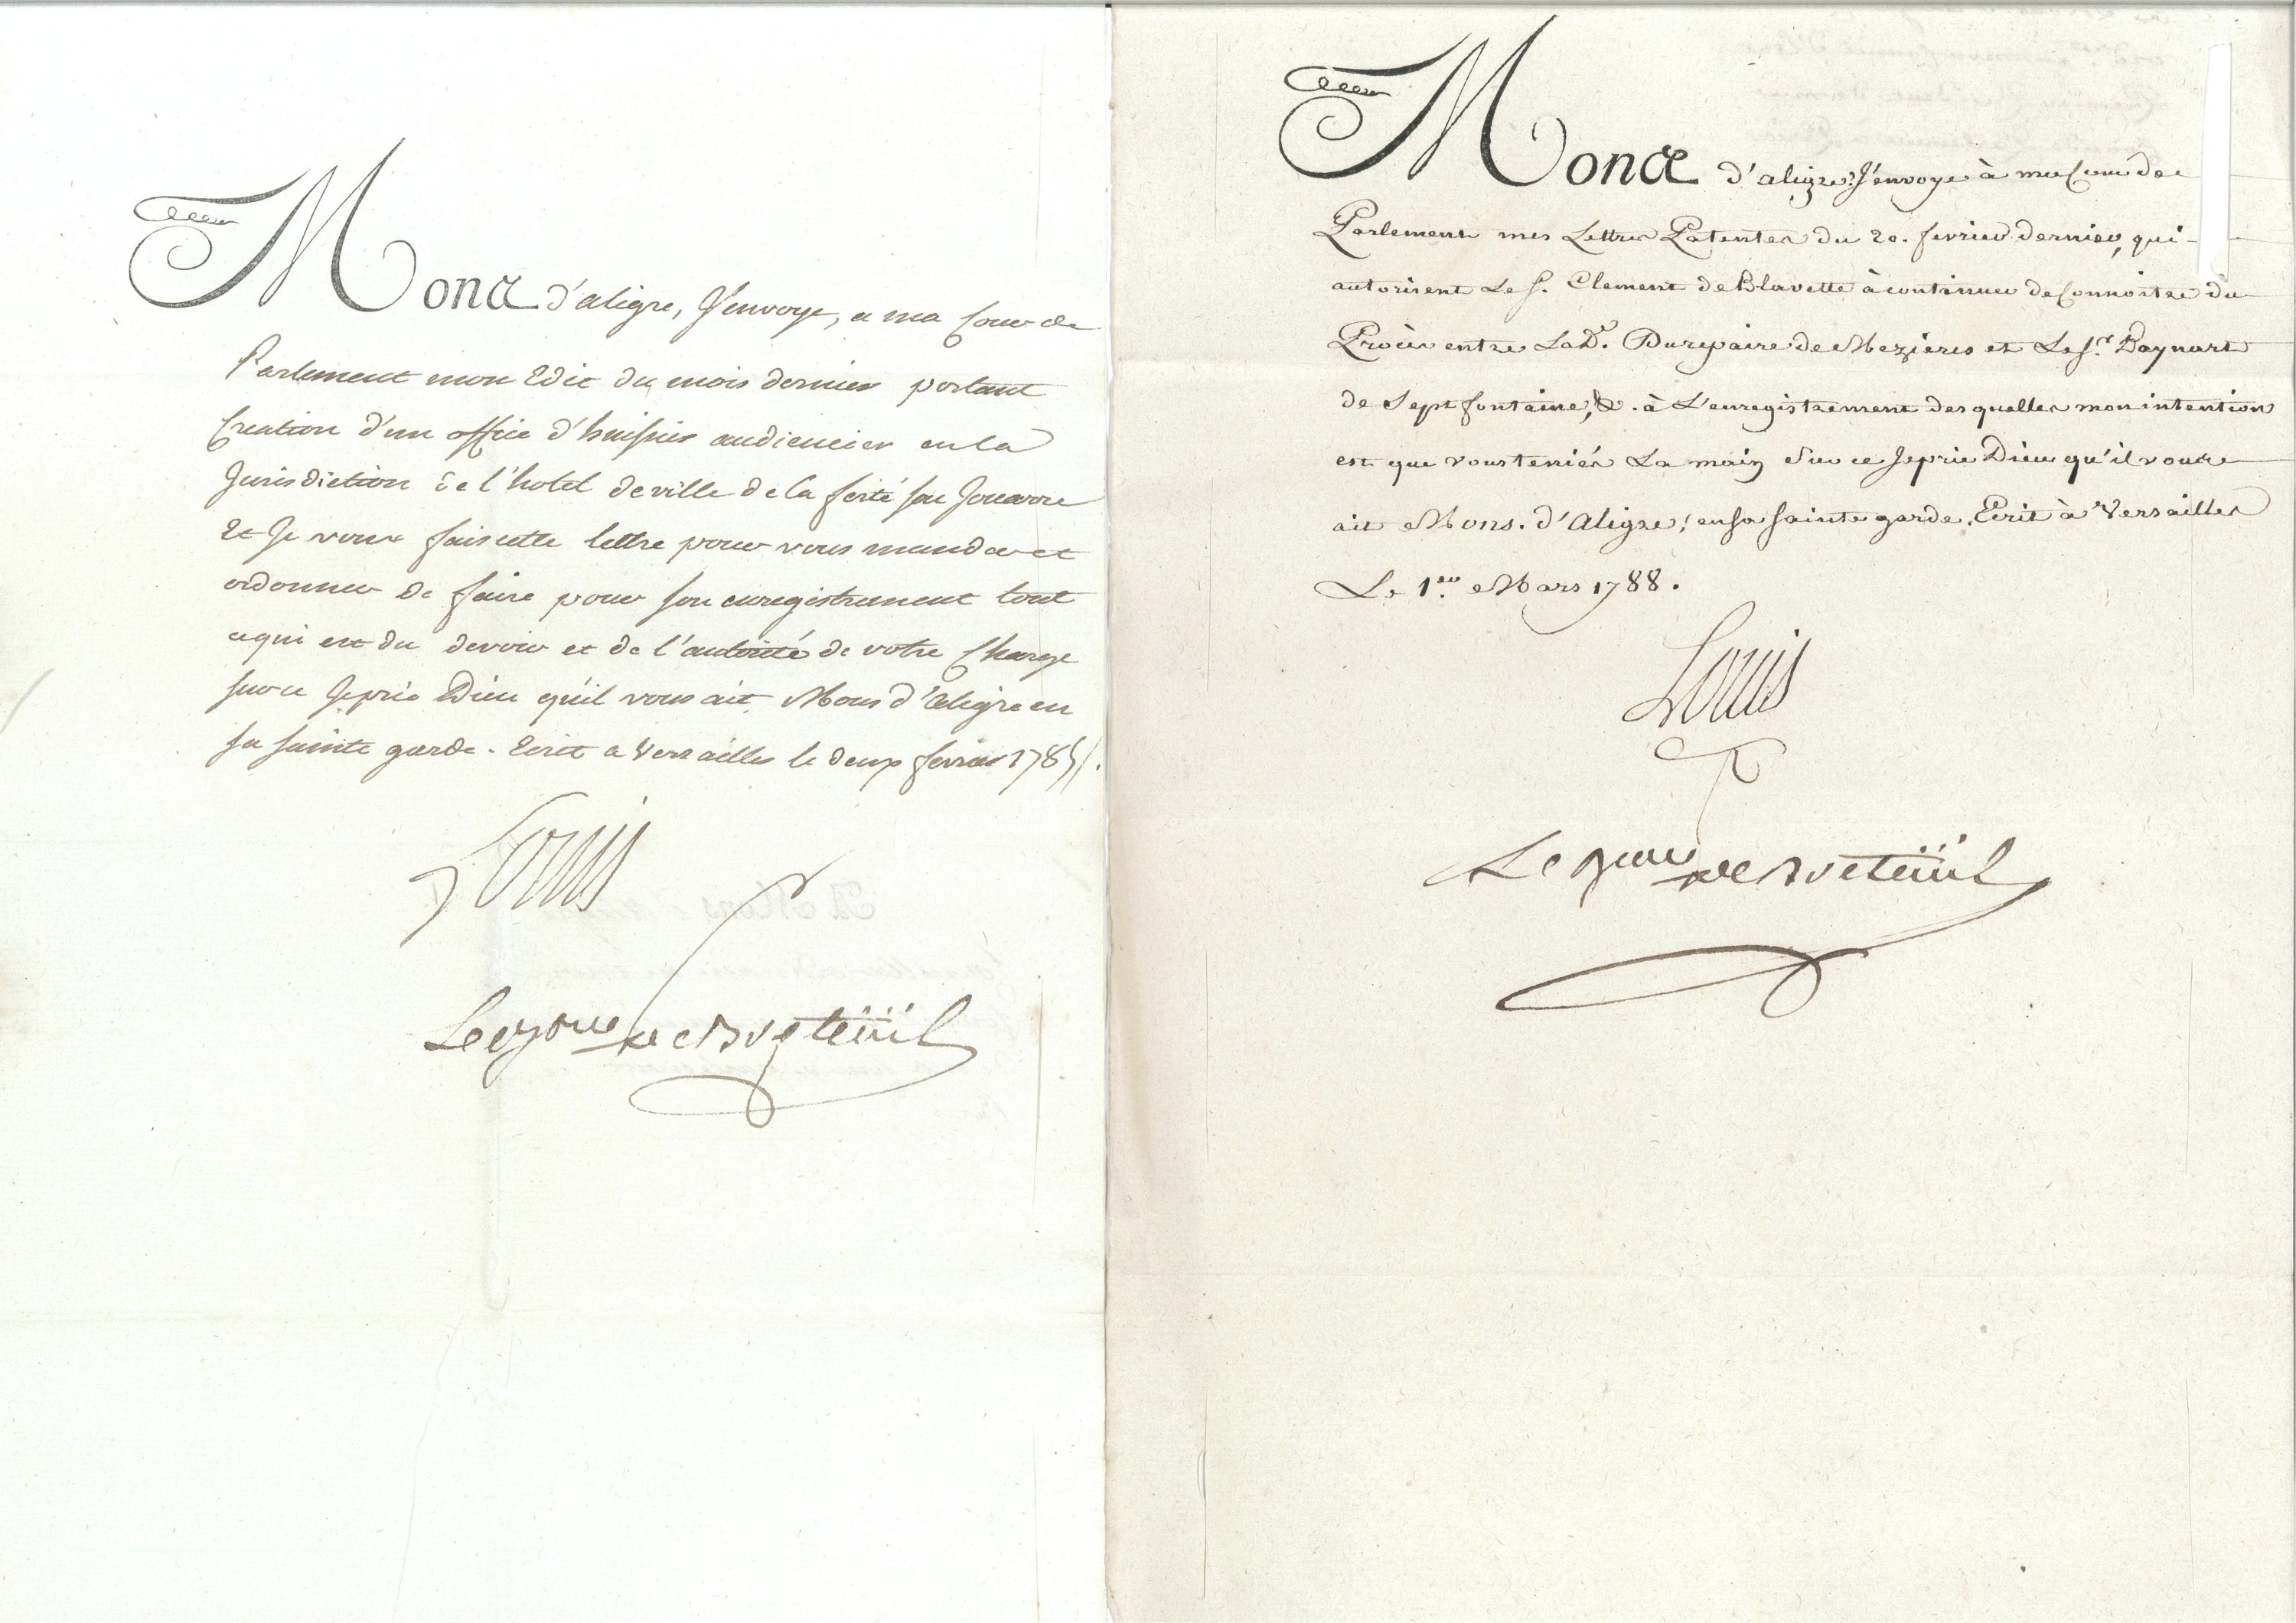 Mons d'aligre, J'envoye, a ma Cour de
Parlement mon Edit du mois dernier portant
Creation d'un office d'huissier audiencier en la
Jurisdiction de l'hotel de ville de la ferté sou Jouarre
Et Je vous fais cette lettre pour vous mander et
ordonner de faire pour son enregistrement tout
ce qui est du devoir et de l'autorité de votre Charge
sur ce Je prie Dieu qu'il vous ait Mons d'Aligre en
sa sainte garde. Ecrit a Versailles le deux fevrier 1785.
Louis
Le Bon de Breteüil
Mons d'aligre, J'envoye à ma Cour de
Parlement mes Lettres Patentes du 20. fevrier dernier, qui
autorisent Le S. Clement de Blavette à continuer de Connoitre du
Procès entre La De. Durepaire de Mezieres et Le Sr. Baynart
de Sept fontaine, &. à L'enregistrement des quelles mon intention
est que vous teniés La main Sur ce Je prie Dieu qu'il vous
ait Mons. d'Aligre, en sa sainte garde. Ecrit à Versailles
Le 1er. Mars 1788.
Louis
Le Bon de Breteüil